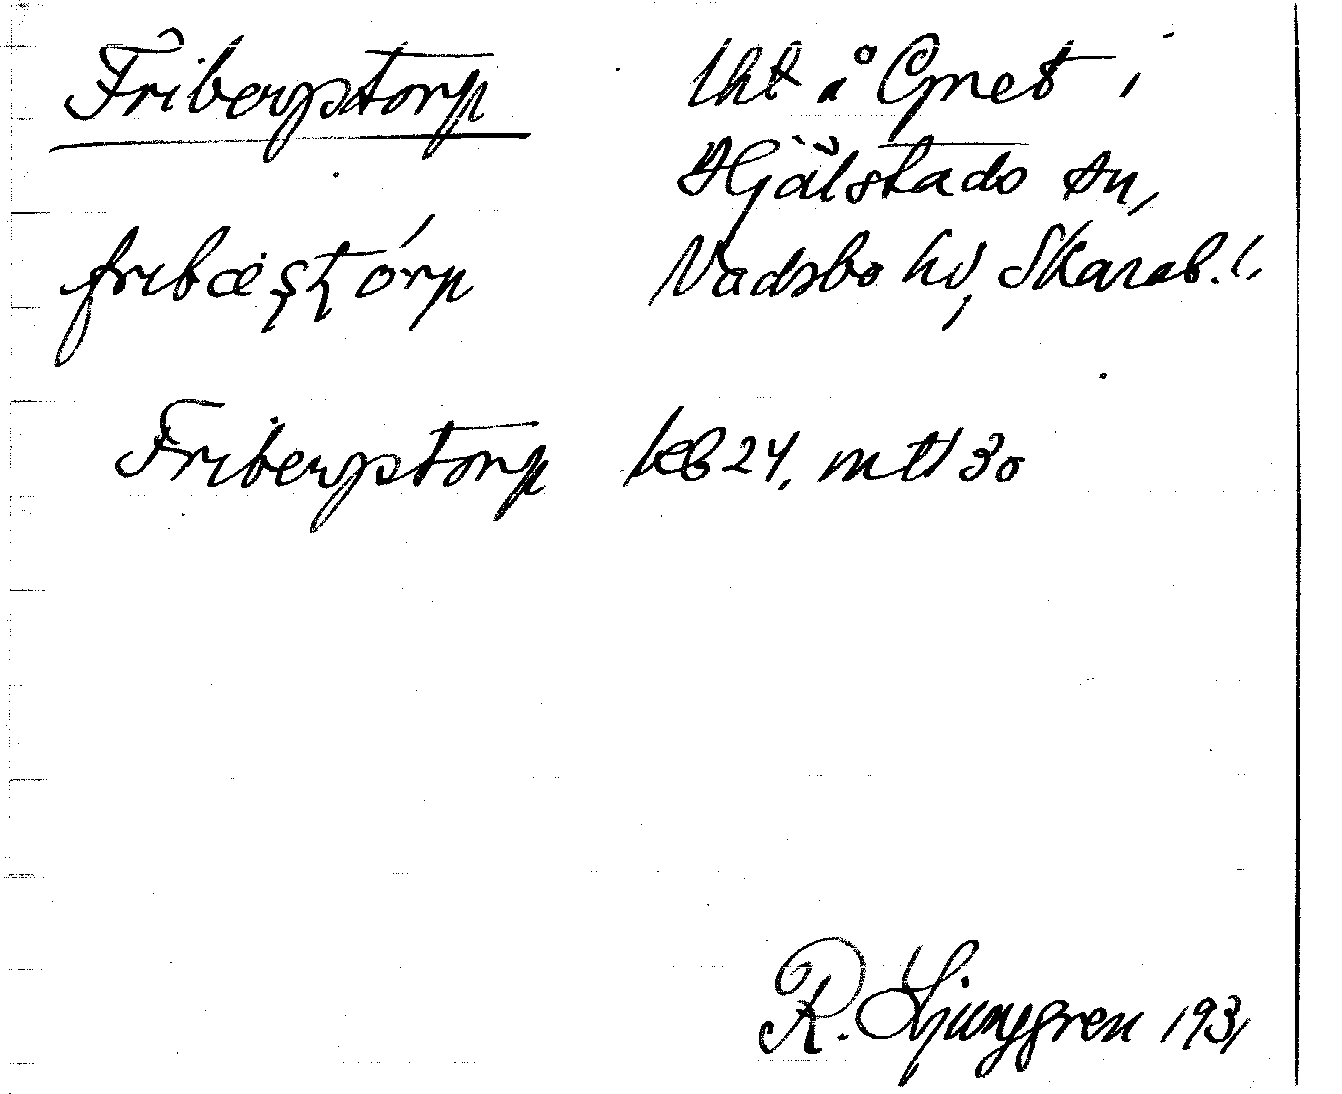 Fribergstorp
lht å Gnet i
Hjälstads sn,
Vadsbo hd, Skarab. l.
Fribergstorp keb 24, mtl 30
R. Ljunggren 1931